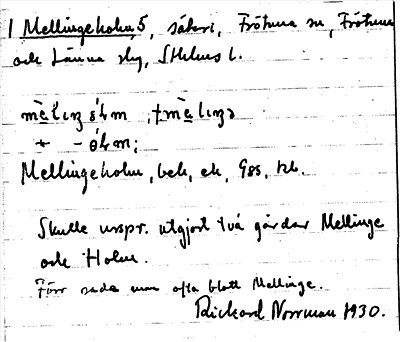 1 Mellingeholm, 5, säteri, Frötuna sn, Frötuna
och Länna slg, Sthlms l.
mèlıŋ ólm, †mèlıŋə
+ - ólm;
Mellingeholm, bek, ek, Gss, kb.
Skulle urspr. utgjort två gårdar Mellinge
och Holm.
Förr sade man ofta blott Mellinge.
Rickard Norrman 1930.